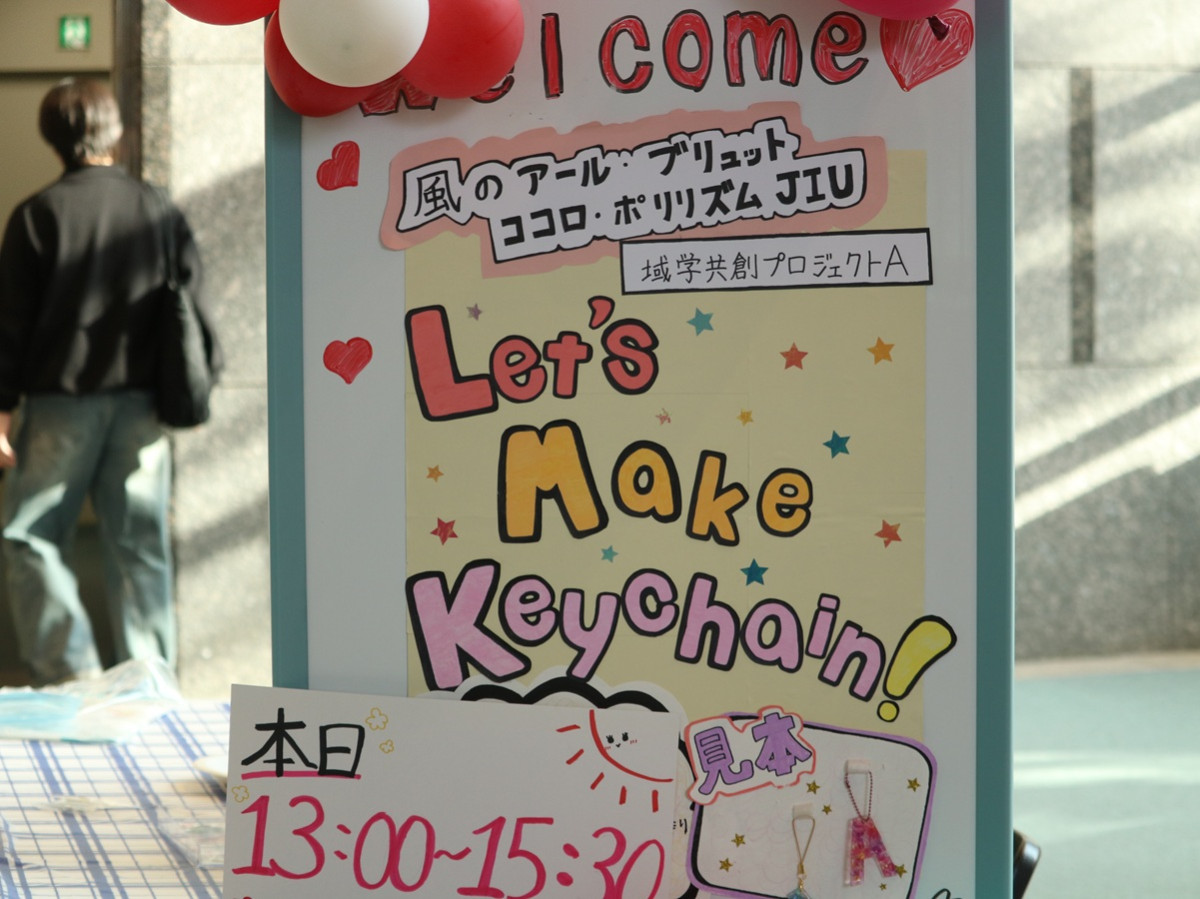 Welcome
風のアール・ブリュット
ココロ・ポリリズムJIU
域学共創プロジェクトA
Let's
Make
Keychain!
本日
13:00~15:30
見本